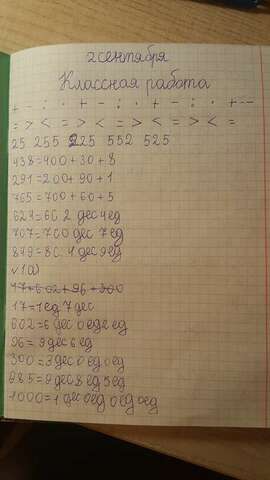 2 сентября
Классная работа
+ - : · + - : · + - : · + -
= > < = > < = > < = > < =
25 255 225 552 525
438=400+30+8
291=200+90+1
765=700+60+5
624=6С 2 дес 4 ед
707=7С0 дес 7 ед
849=8С 4 дес 9 ед
√1(а)
17=1 ед 7 дес
602=6 дес 0 ед 2 ед
96=9 дес 6 ед
300=3 дес 0 ед 0 ед
985=9 дес 8 ед 5 ед
1000=1 дес 0 ед 0 ед 0 ед